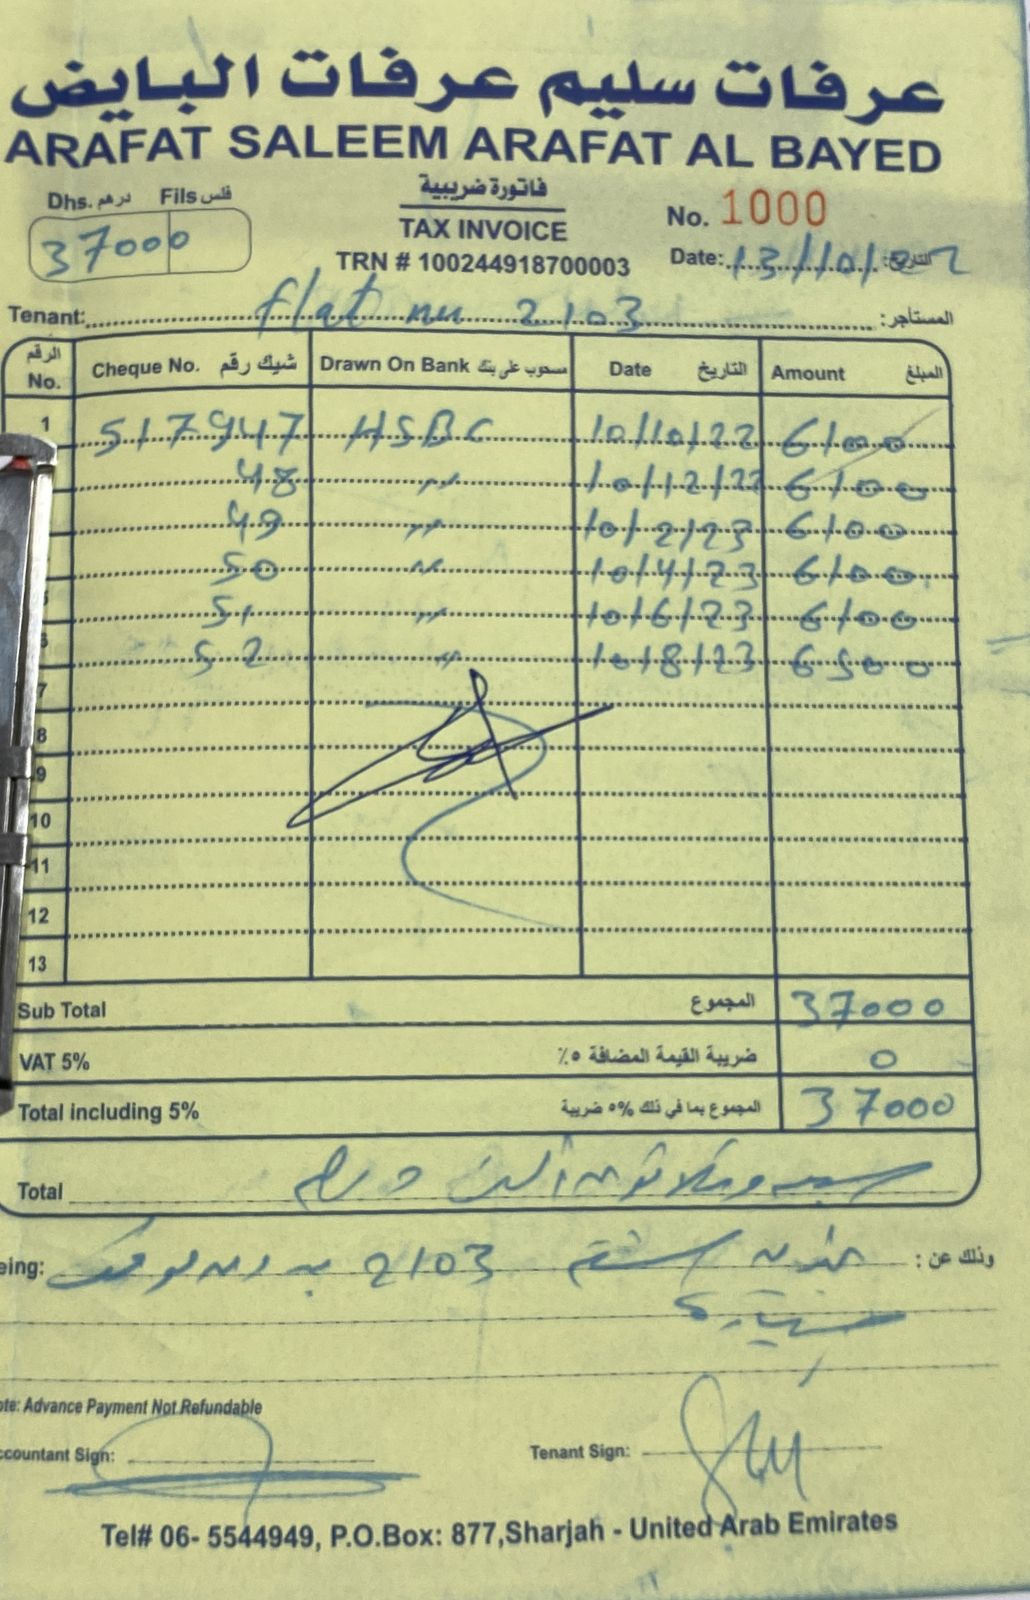 عرفات سليم عرفات البايض
ARAFAT SALEEM ARAFAT AL BAYED
Dhs. درهم Fils فلس
37000
فاتورة ضريبية
TAX INVOICE
TRN # 100244918700003
No. 1000
Date: 13/10/22 التاريخ:
Tenant: flat nu 2103 المستأجر:
الرقم No. Cheque No. شيك رقم Drawn On Bank مسحوب على بنك Date التاريخ Amount المبلغ
1 517947 HSBC 10/10/22 6100
48 〃 10/12/22 6100
49 〃 10/2/23 6100
50 〃 10/4/23 6100
51 〃 10/6/23 6100
6 52 〃 10/8/23 6500
7
8
9
10
11
12
13
Sub Total المجموع 37000
VAT 5% ضريبة القيمة المضافة ٥٪ 0
Total including 5% المجموع بما في ذلك ٥% ضريبة 37000
Total سبعة وثلاثون ألف درهم
eing: 2103 وذلك عن:
ote: Advance Payment Not Refundable
ccountant Sign: Tenant Sign:
Tel# 06- 5544949, P.O.Box: 877,Sharjah - United Arab Emirates